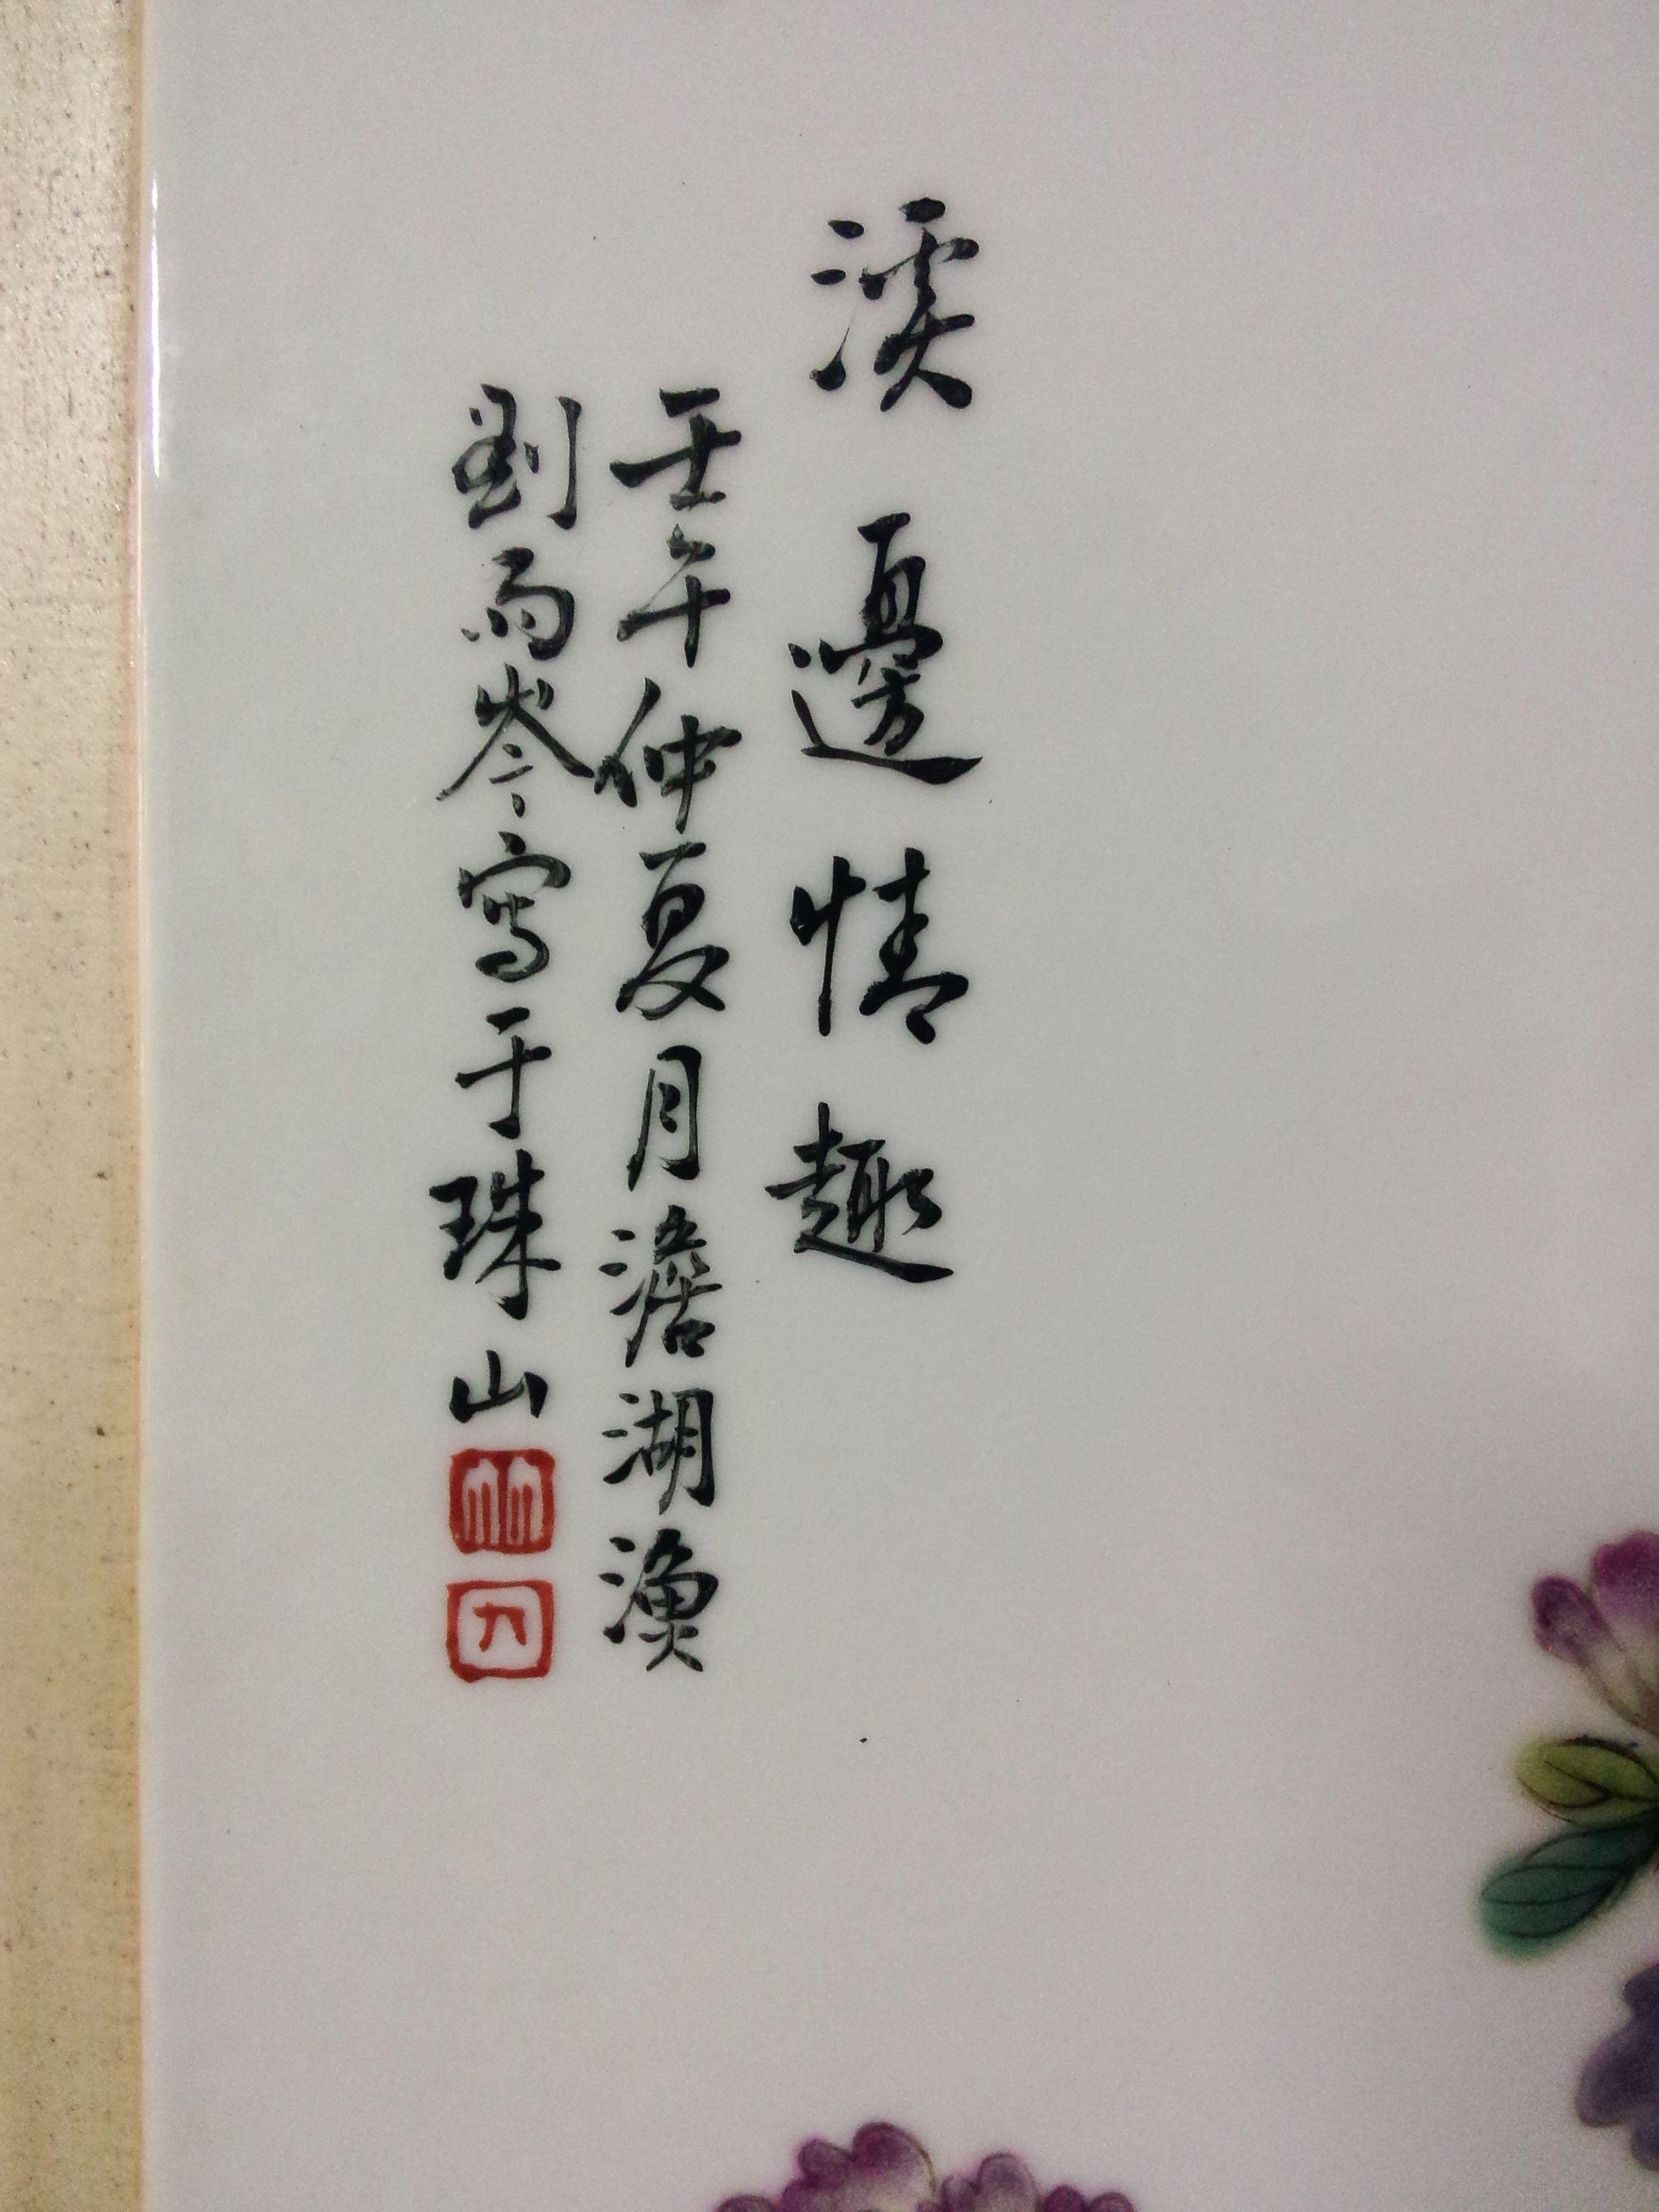 溪邊情趣
壬午仲夏月澹湖漁
劉雨岑寫于珠山